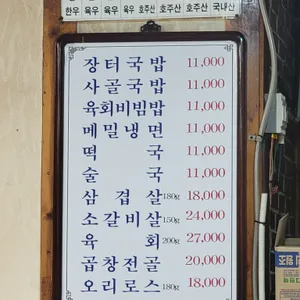 한우 육우 육우 호주산 호주산 국내산
장터국밥 11,000
사골국밥 11,000
육회비빔밥 11,000
메밀냉면 11,000
떡국 11,000
술국 11,000
삼겹살180g 18,000
소갈비살150g 24,000
육회200g 27,000
곱창전골 20,000
오리로스180g 18,000